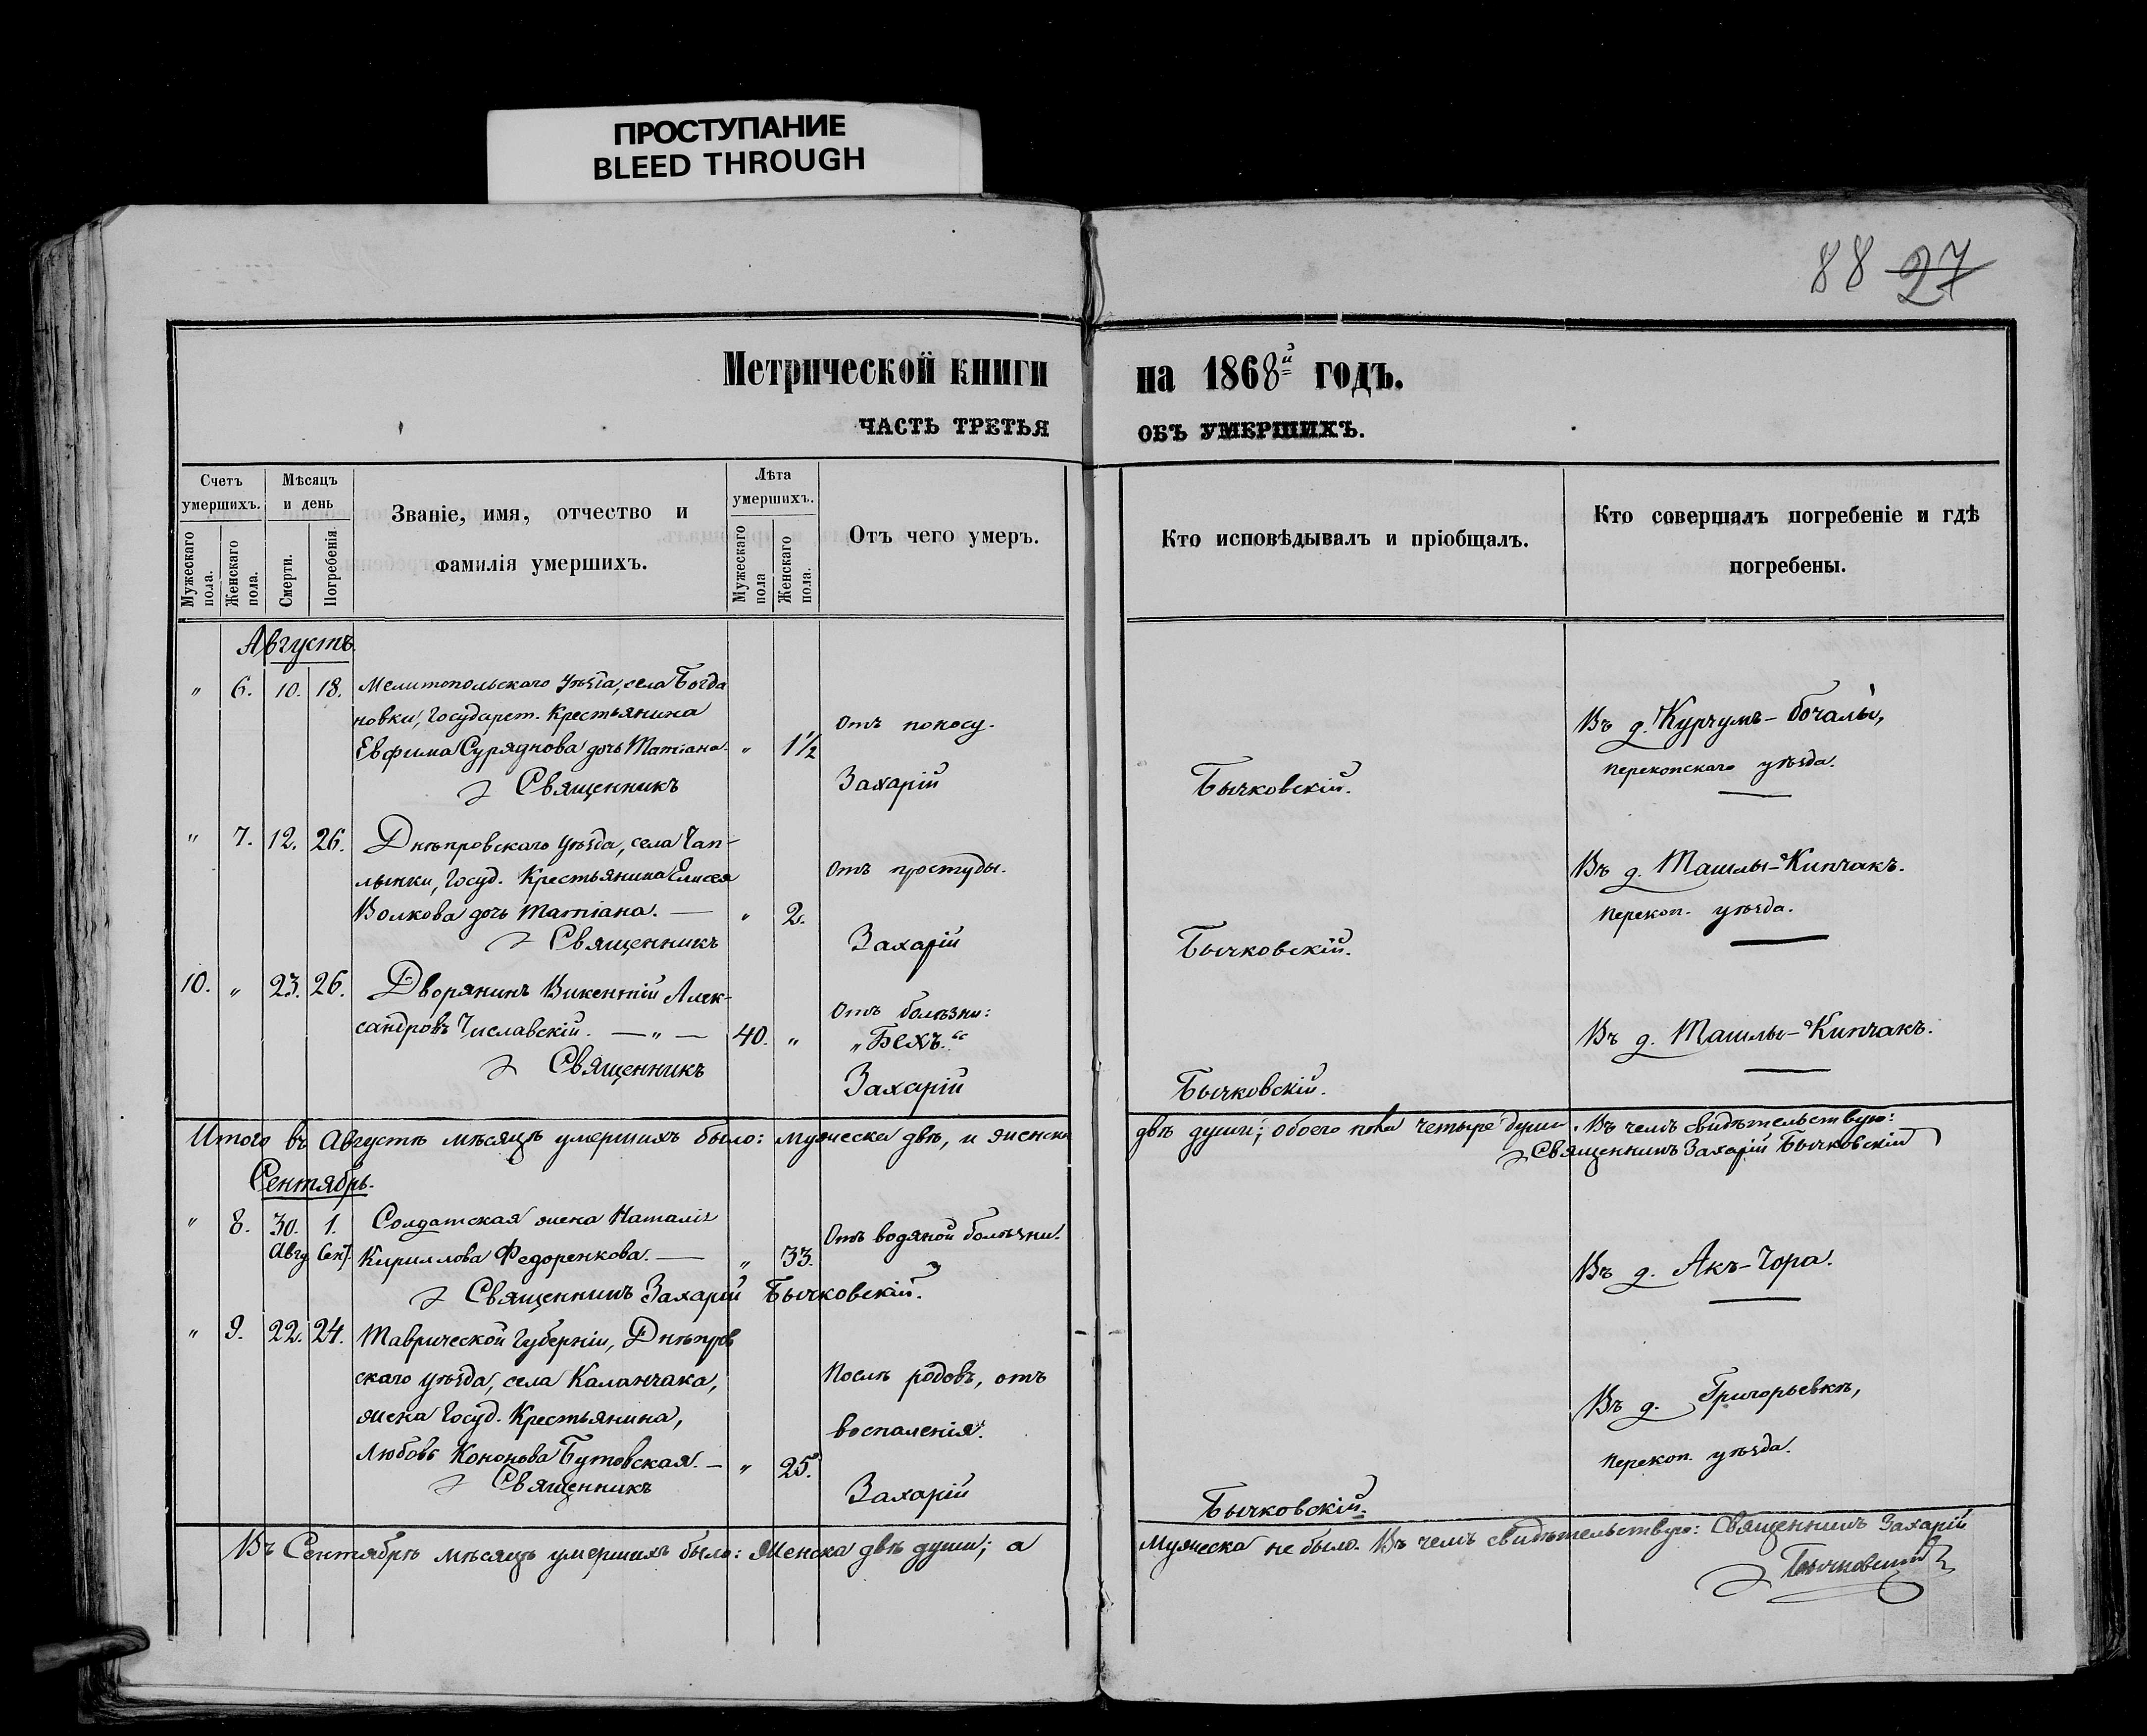 ПРОСТУПАНИЕ
BLEED THROUGH
88 27
Метрической книги на 1868й годъ.
ЧАСТЬ ТРЕТЬЯ ОБЪ УМЕРШИХЪ.
Счетъ умершихъ.
Мужескаго пола.
Женскаго пола.
Мѣсяцъ и день
Смерти.
Погребенія.
Званіе, имя, отчество и
фамилія умершихъ.
Лѣта умершихъ.
Мужескаго пола
Женскаго пола.
Отъ чего умеръ.
Кто исповѣдывалъ и пріобщалъ.
Кто совершалъ погребеніе и гдѣ
погребены.
Августъ.
" 6. 10. 18. Мелитопольскаго уѣзда, села Богда
новки, Государст. Крестьянина Отъ поносу. Въ д. Курчумъ-бочалы,
Евфима Суряднова дочь Татіана. " 1½ Перекопскаго уѣзда.
Священникъ Захарій Бычковскій.
" 7. 12. 26. Днѣпровскаго уѣзда, села Чап-
лынки, Госуд. Крестьянина Елисея Отъ простуды. Въ д. Ташлы-Кипчакъ.
Волкова дочь Татіана. — " 2. Перекоп. уѣзда.
Священникъ Захарій Бычковскій.
10. " 23. 26. Дворянинъ Викентій Алек-
сандровъ Числавскій. — " — 40. " Отъ болѣзни: Въ д. Ташлы-Кипчакъ.
„Бехъ.“
Священникъ Захарій Бычковскій.
Итого въ Августѣ мѣсяцѣ умершихъ было: мужеска двѣ, и женска двѣ души; обоего пола четыре души. Въ чемъ свидѣтельствую:
Священникъ Захарій Бычковскій
Сентябрь.
" 8. 30. 1. Солдатская жена Наталія Отъ водяной болѣзни.
Авгу Сент. Кириллова Федоренкова. — " 33. Въ д. Акъ-Чора.
Священникъ Захарій Бычковскій.
" 9. 22. 24. Таврической Губерніи, Днѣпров
скаго уѣзда, села Каланчака, Послѣ родовъ, отъ Въ д. Григорьевкѣ,
жена Госуд. Крестьянина, воспаленія.
Любовь Кононова Бутовская. — " 25. Перекоп. уѣзда.
Священникъ Захарій Бычковскій.
Въ Сентябрѣ мѣсяцѣ умершихъ было: Женска двѣ души; а мужеска не было. Въ чемъ свидѣтельствую: Священникъ Захарій
Бычковскій